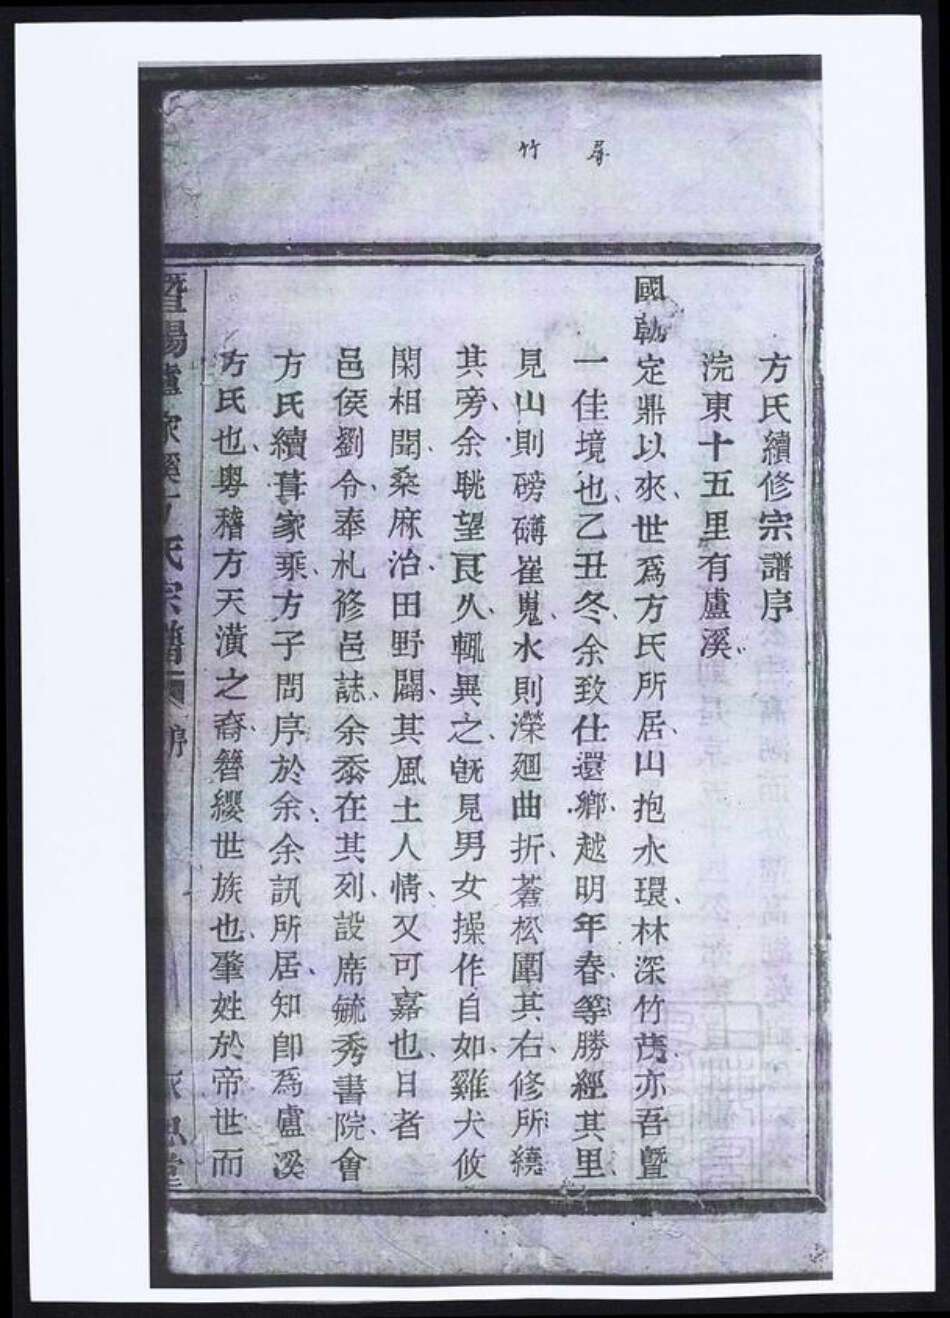 竹 孱
方氏續修宗譜序
浣東十五里有盧溪
國朝定鼎以來世爲方氏所居山抱水環林深竹茂亦吾暨
一佳境也乙丑冬余致仕還鄉越明年春等勝經其里
見山則磅礴崔嵬水則濚廻曲折蒼松圍其右修所繞
其旁余眺望良久輒異之旣見男女操作自如雞犬攸
閑相聞桑麻治田野闢其風土人情又可嘉也日者
邑侯劉令奉札修邑誌余忝在其列設席毓秀書院會
方氏續葺家乘方子問序於余余訊所居知卽爲盧溪
方氏也粤稽方天潢之裔簪纓世族也肇姓於帝世而
暨陽盧家溪方氏宗譜 序